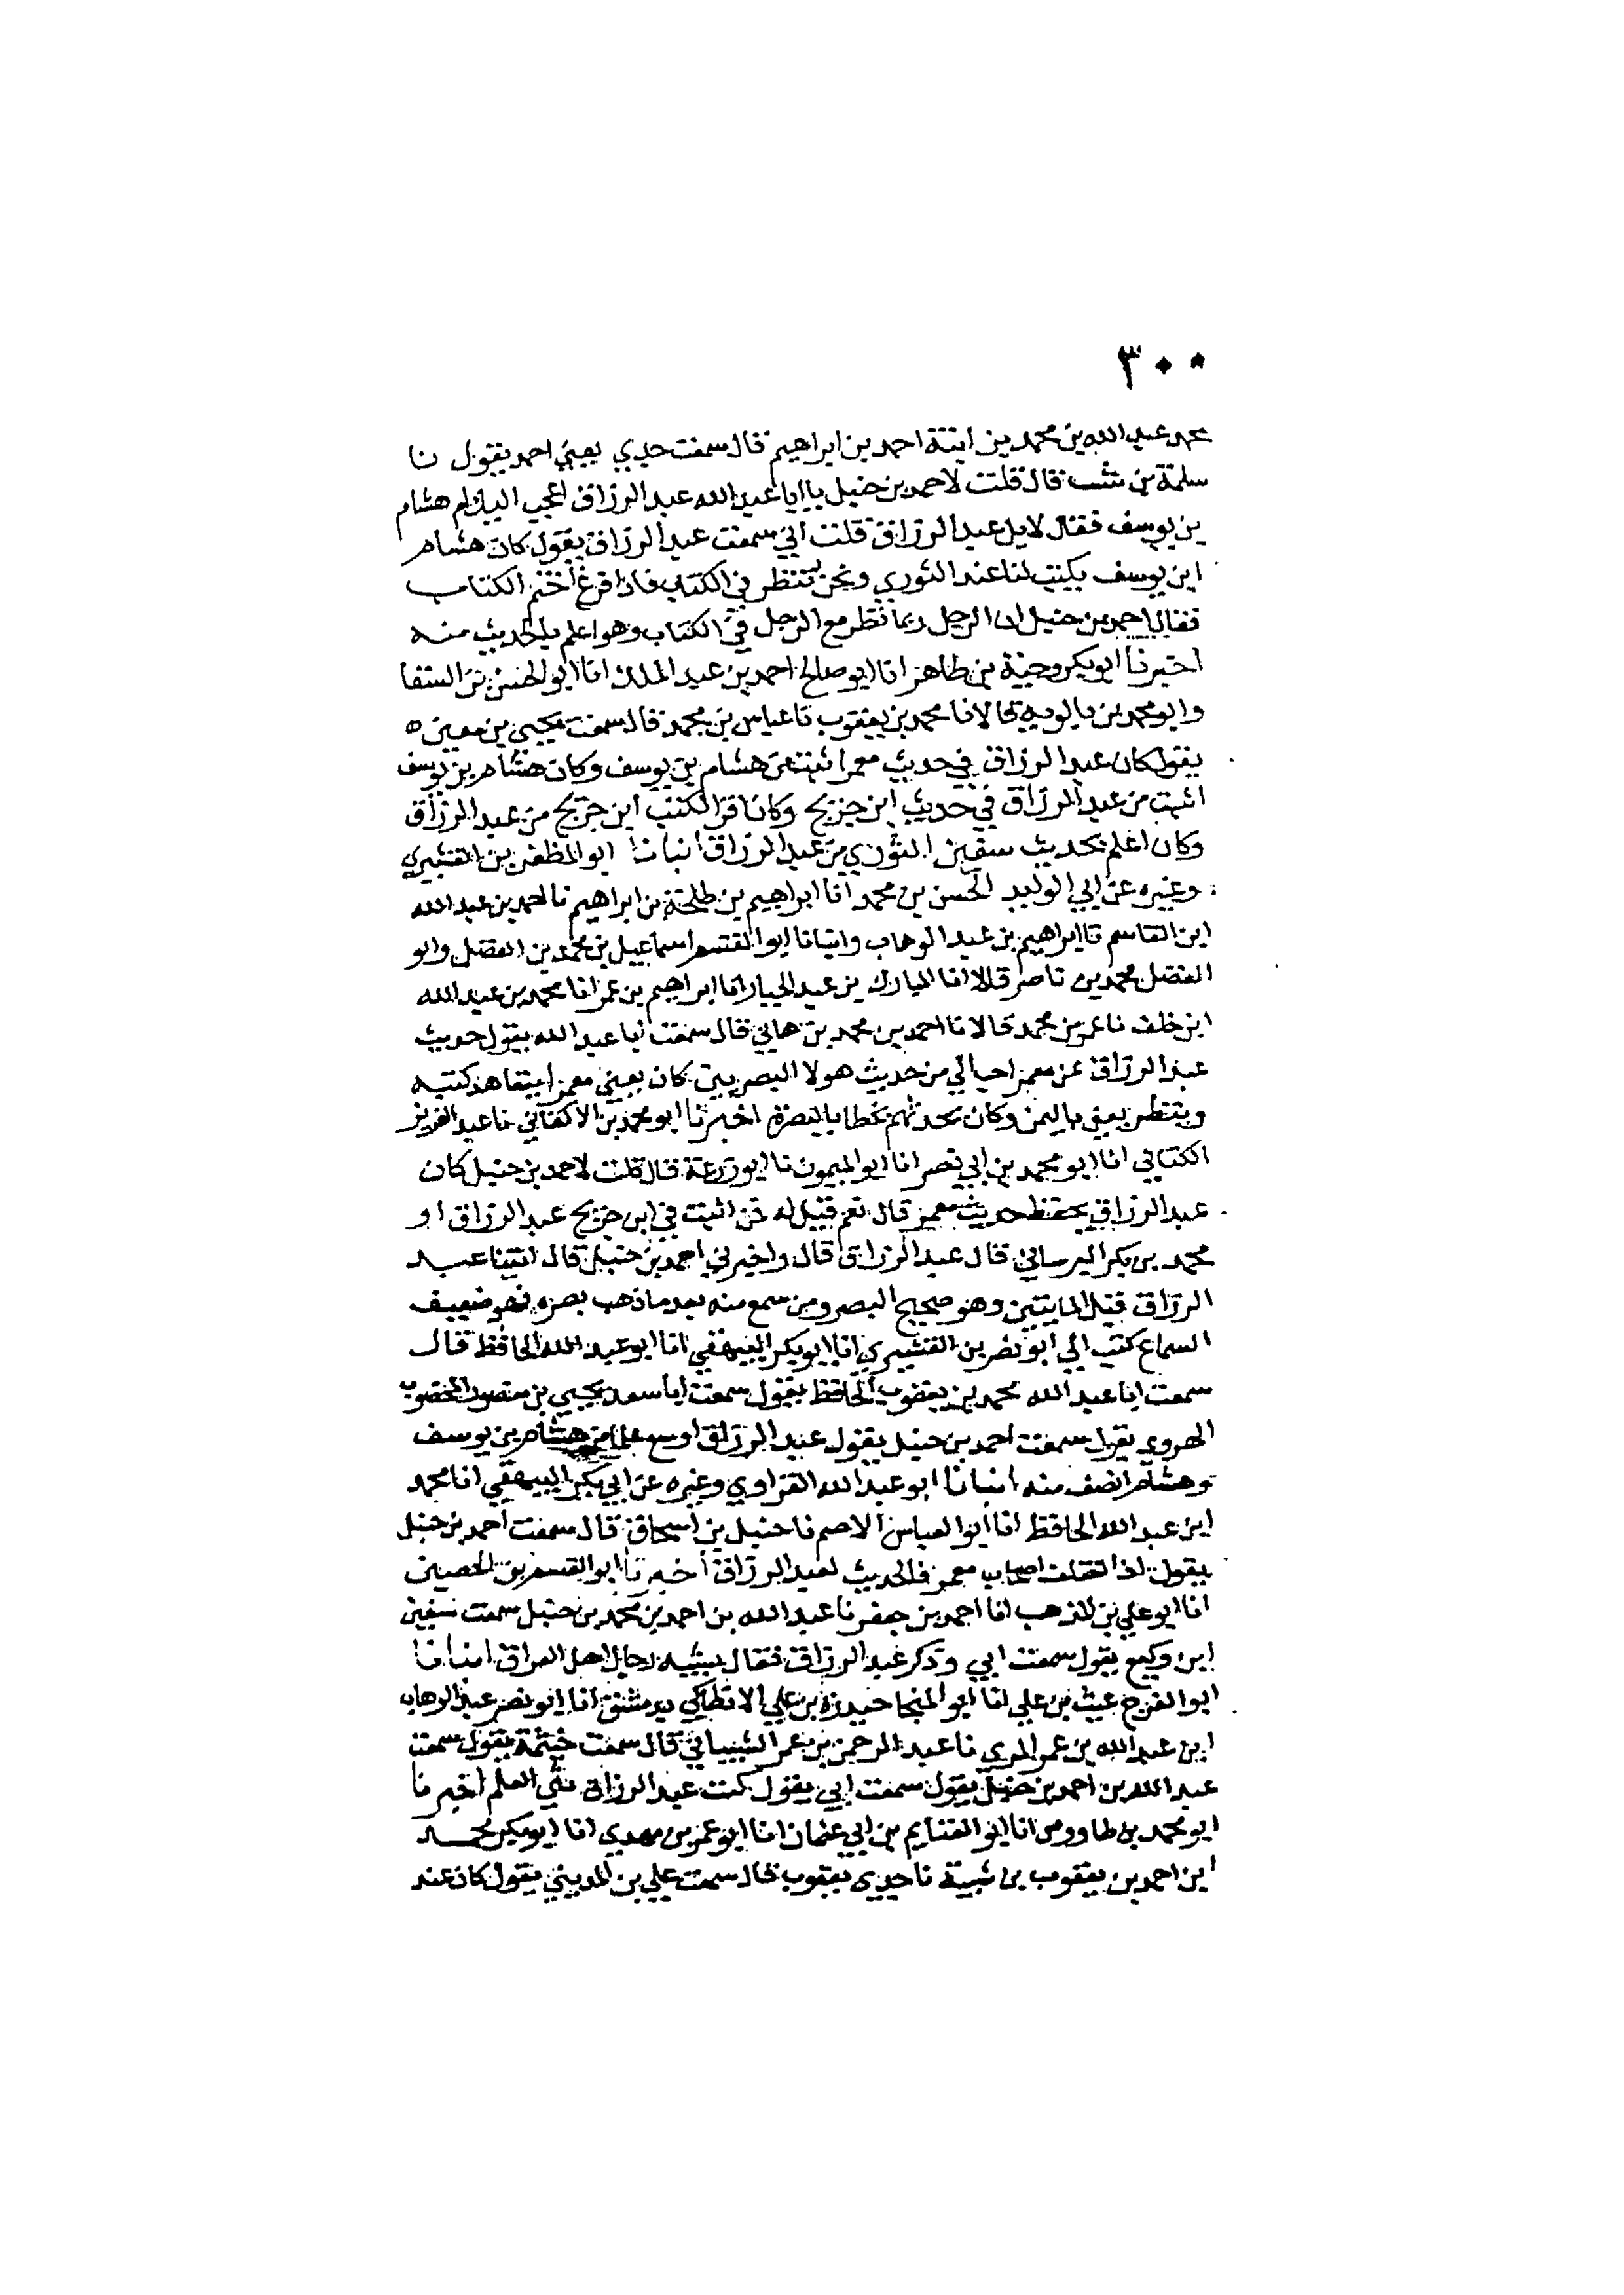 ٣٠٠
محمد عبد الله بن محمد بن ابنة احمد بن ابراهيم قال سمعت جدي يعني احمد يقول نا
سلمة بن شبيب قال قلت لاحمد بن حنبل يا ابا عبد الله عبد الرزاق اعجب اليك ام هشام
بن يوسف فقال لا بل عبد الرزاق قلت اني سمعت عبد الرزاق يقول كان هشام
ابن يوسف يكتب لنا عند الثوري ونحن ننظر في الكتاب فاذا فرغ اختم الكتاب
فقال احمد بن حنبل ان الرجل ربما نظر مع الرجل في الكتاب وهو اعلم بالحديث منه
اخبرنا ابو بكر وجيه بن طاهر انا ابو صالح احمد بن عبد الملك انا ابو الحسن بن السقا
وابو محمد بن بالويه قالا نا محمد بن يعقوب نا عباس بن محمد قال سمعت يحيى بن معين
يقول كان عبد الرزاق في حديث معمر اثبت من هشام بن يوسف وكان هشام بن يوسف
اثبت من عبد الرزاق في حديث ابن جريج وكان اقرا لكتب ابن جريج من عبد الرزاق
وكان اعلم بحديث سفين الثوري من عبد الرزاق انبانا ابو المظفر بن القشيري
وغيره عن ابي الوليد الحسن بن محمد انا ابراهيم بن طلحة بن ابراهيم نا احمد بن عبد الله
ابن القاسم نا ابراهيم بن عبد الوهاب وانبانا ابو القسم اسماعيل بن محمد بن الفضل وابو
الفضل محمد بن ناصر قالا انا المبارك بن عبد الجبار انا ابراهيم بن عمر انا محمد بن عبد الله
ابن خلف نا عمر بن محمد قالا نا احمد بن محمد بن هاني قال سمعت ابا عبد الله يقول حديث
عبد الرزاق عن معمر احب الي من حديث هولا البصريين كان يعني معمر ايتعاهد كتبه
وينظر يعني باليمن وكان يحدثهم بخطا بالبصرة اخبرنا ابو محمد بن الاكفاني نا عبد العزيز
الكتاني انا ابو محمد بن ابي نصر انا ابو الميمون نا ابو زرعة قال قلت لاحمد بن حنبل كان
عبد الرزاق يحفظ حديث معمر قال نعم قيل له فمن اثبت في ابن جريج عبد الرزاق او
محمد بن بكر البرساني قال عبد الرزاق قال واخبرني احمد بن حنبل قال اتينا عبد
الرزاق قبل المايتين وهو صحيح البصر ومن سمع منه بعد ما ذهب بصره فهو ضعيف
السماع كتب الي ابو نصر بن القشيري انا ابو بكر البيهقي انا ابو عبد الله الحافظ قال
سمعت ابا عبد الله محمد بن يعقوب الحافظ يقول سمعت ابا سعد يحيى بن منصور
الهروي يقول سمعت احمد بن حنبل يقول عبد الرزاق اوسع علما من هشام بن يوسف
وهشام انصف منه انبانا ابو عبد الله الفراوي وغيره عن ابي بكر البيهقي انا محمد
ابن عبد الله الحافظ انا ابو العباس الاصم نا حنبل بن اسحاق قال سمعت احمد بن حنبل
يقول اذا اختلف اصحاب معمر فالحديث لعبد الرزاق اخبرنا ابو القسم بن الحصين
انا ابو علي بن المذهب انا احمد بن جعفر نا عبد الله بن احمد بن محمد بن حنبل سمعت سفين
ابن وكيع يقول سمعت ابي وذكر عبد الرزاق فقال يشبه رجال اهل العراق انبانا
ابو الفرج غيث بن علي انا ابو المنجا حيدرة بن علي الانطاكي بدمشق انا ابو نصر عبد الوهاب
ابن عبد الله بن عمر المري نا عبد الرحمن بن عمر الشيباني قال سمعت خيثمة يقول سمعت
عبد الله بن احمد بن حنبل يقول سمعت ابي يقول كنت عبد الرزاق العلم اخبرنا
ابو محمد بن طاووس انا ابو الغنايم بن ابي عثمان انا ابو عمر بن مهدي انا ابو بكر محمد
ابن احمد بن يعقوب بن شيبة نا جدي يعقوب قال سمعت علي بن المديني يقول كان عند